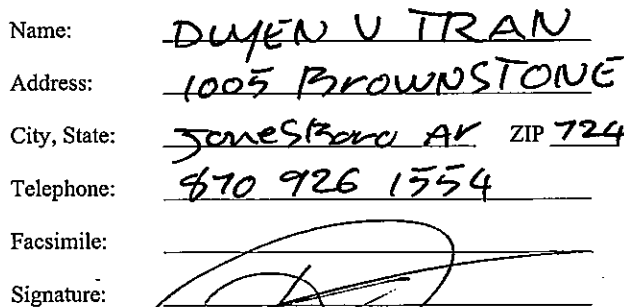 Name: DUYEN V TRAN
Address: 1005 BROWNSTONE
City, State: JonesBoro Ar ZIP 724
Telephone: 870 926 1554
Facsimile:
Signature: